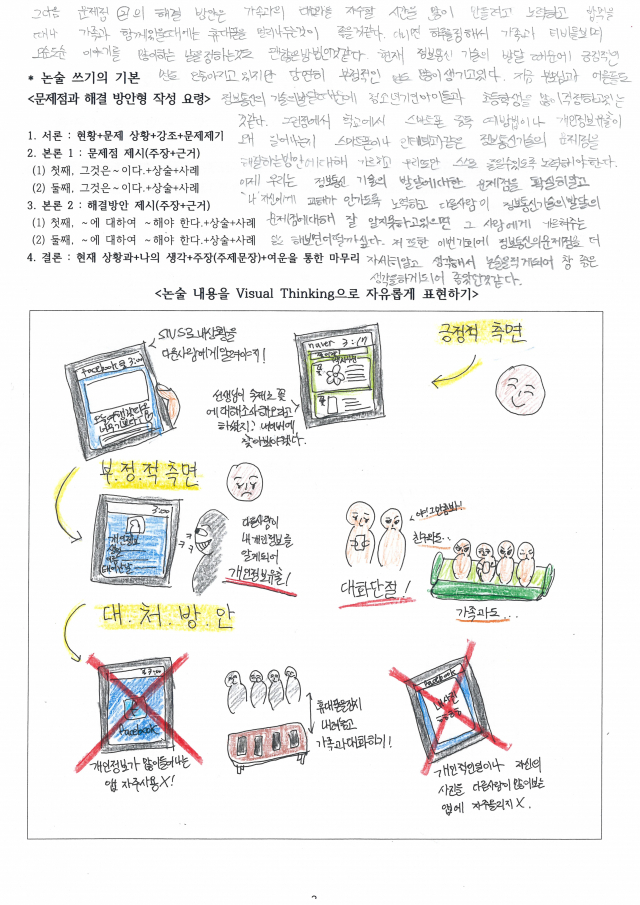 그다음 문제점 ②의 해결 방안은 가족과의 대화를 자주할 시간을 많이 만들려고 노력하고 밥먹을
때나 가족과 함께있을때에는 휴대폰을 만지는것이 좋을것같다. 아니면 하루를정해서 가족과 티비를보며
오손도손 이야기를 많이하는 날을정하는것도 괜찮은방법인것같다. 현재 정보통신 기술의 발달 때문에 긍정적인
* 논술 쓰기의 기본
면도 많아지고 있지만 당연히 부정적인 면도 많이생기고있다.
<문제점과 해결 방안형 작성 요령>
정보통신의 기술의발달때문에 청소년기인아이들과 초등학생을 많이걱정하고있는것
같다. 그런점에서 학교에서 스마트폰 중독 예방법이나 개인정보유출이
1. 서론 : 현황+문제 상황+강조+문제제기
왜 일어나는지 스마트폰이나 인터넷과같은 정보통신기술의 문제점을
2. 본론 1 : 문제점 제시(주장+근거)
해결하는방안에대해 가르치고 우리또한 스스로 줄일수있도록 노력해야한다.
(1) 첫째, 그것은~이다.+상술+사례
이제 우리는 정보통신 기술의 발달에대한 문제점을 확실히알고
(2) 둘째, 그것은~이다.+상술+사례
'나'자신에게 피해가 안가도록 노력하고 다른사람이 정보통신기술의발달의
3. 본론 2 : 해결방안 제시(주장+근거)
문제점에대해 잘 알지못하고있으면 그 사람에게 가르쳐주는
(1) 첫째, ~에 대하여 ~해야 한다.+상술+사례
(2) 둘째, ~에 대하여 ~해야 한다.+상술+사례
해보면어떨까싶다. 저 또한 이번기회에 정보통신의문제점을 더
4. 결론 : 현재 상황과+나의 생각+주장(주제문장)+여운을 통한 마무리
자세히알고 생각해서 논술을적게되어 참 좋은
생각을하게되어 좋았던것같다.
<논술 내용을 Visual Thinking으로 자유롭게 표현하기>
SNS로 내상황을
다른사람에게 알려야지!
facebook 3:00
오늘여행갔다옴
너무기쁘다!
naver 3:17
꽃
선생님이 숙제로 꽃
에 대해조사해오라고
하셨지! 네이버에
찾아봐야겠다.
긍정적 측면
부.정.적측면
3:00
개인정보
ㅋㅋ
다른사람이
내개인정보를
알게되어
개인정보유출!
대화단절!
친구와도..
가족과도...
대.처.방.안
3:00
Facebook
개인정보가 많이들어나는
앱 자주사용X!
휴대폰을잠시
내려놓고
가족과대화하기!
facebook
내사진
개인적인일이나 자신의
사진을 다른사람이 많이보는
앱에 자주올리지X.